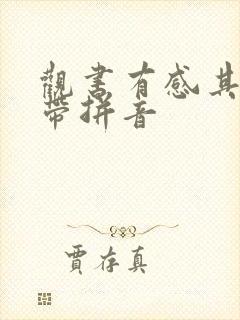 觀書有感其
帶拼音
賈存真